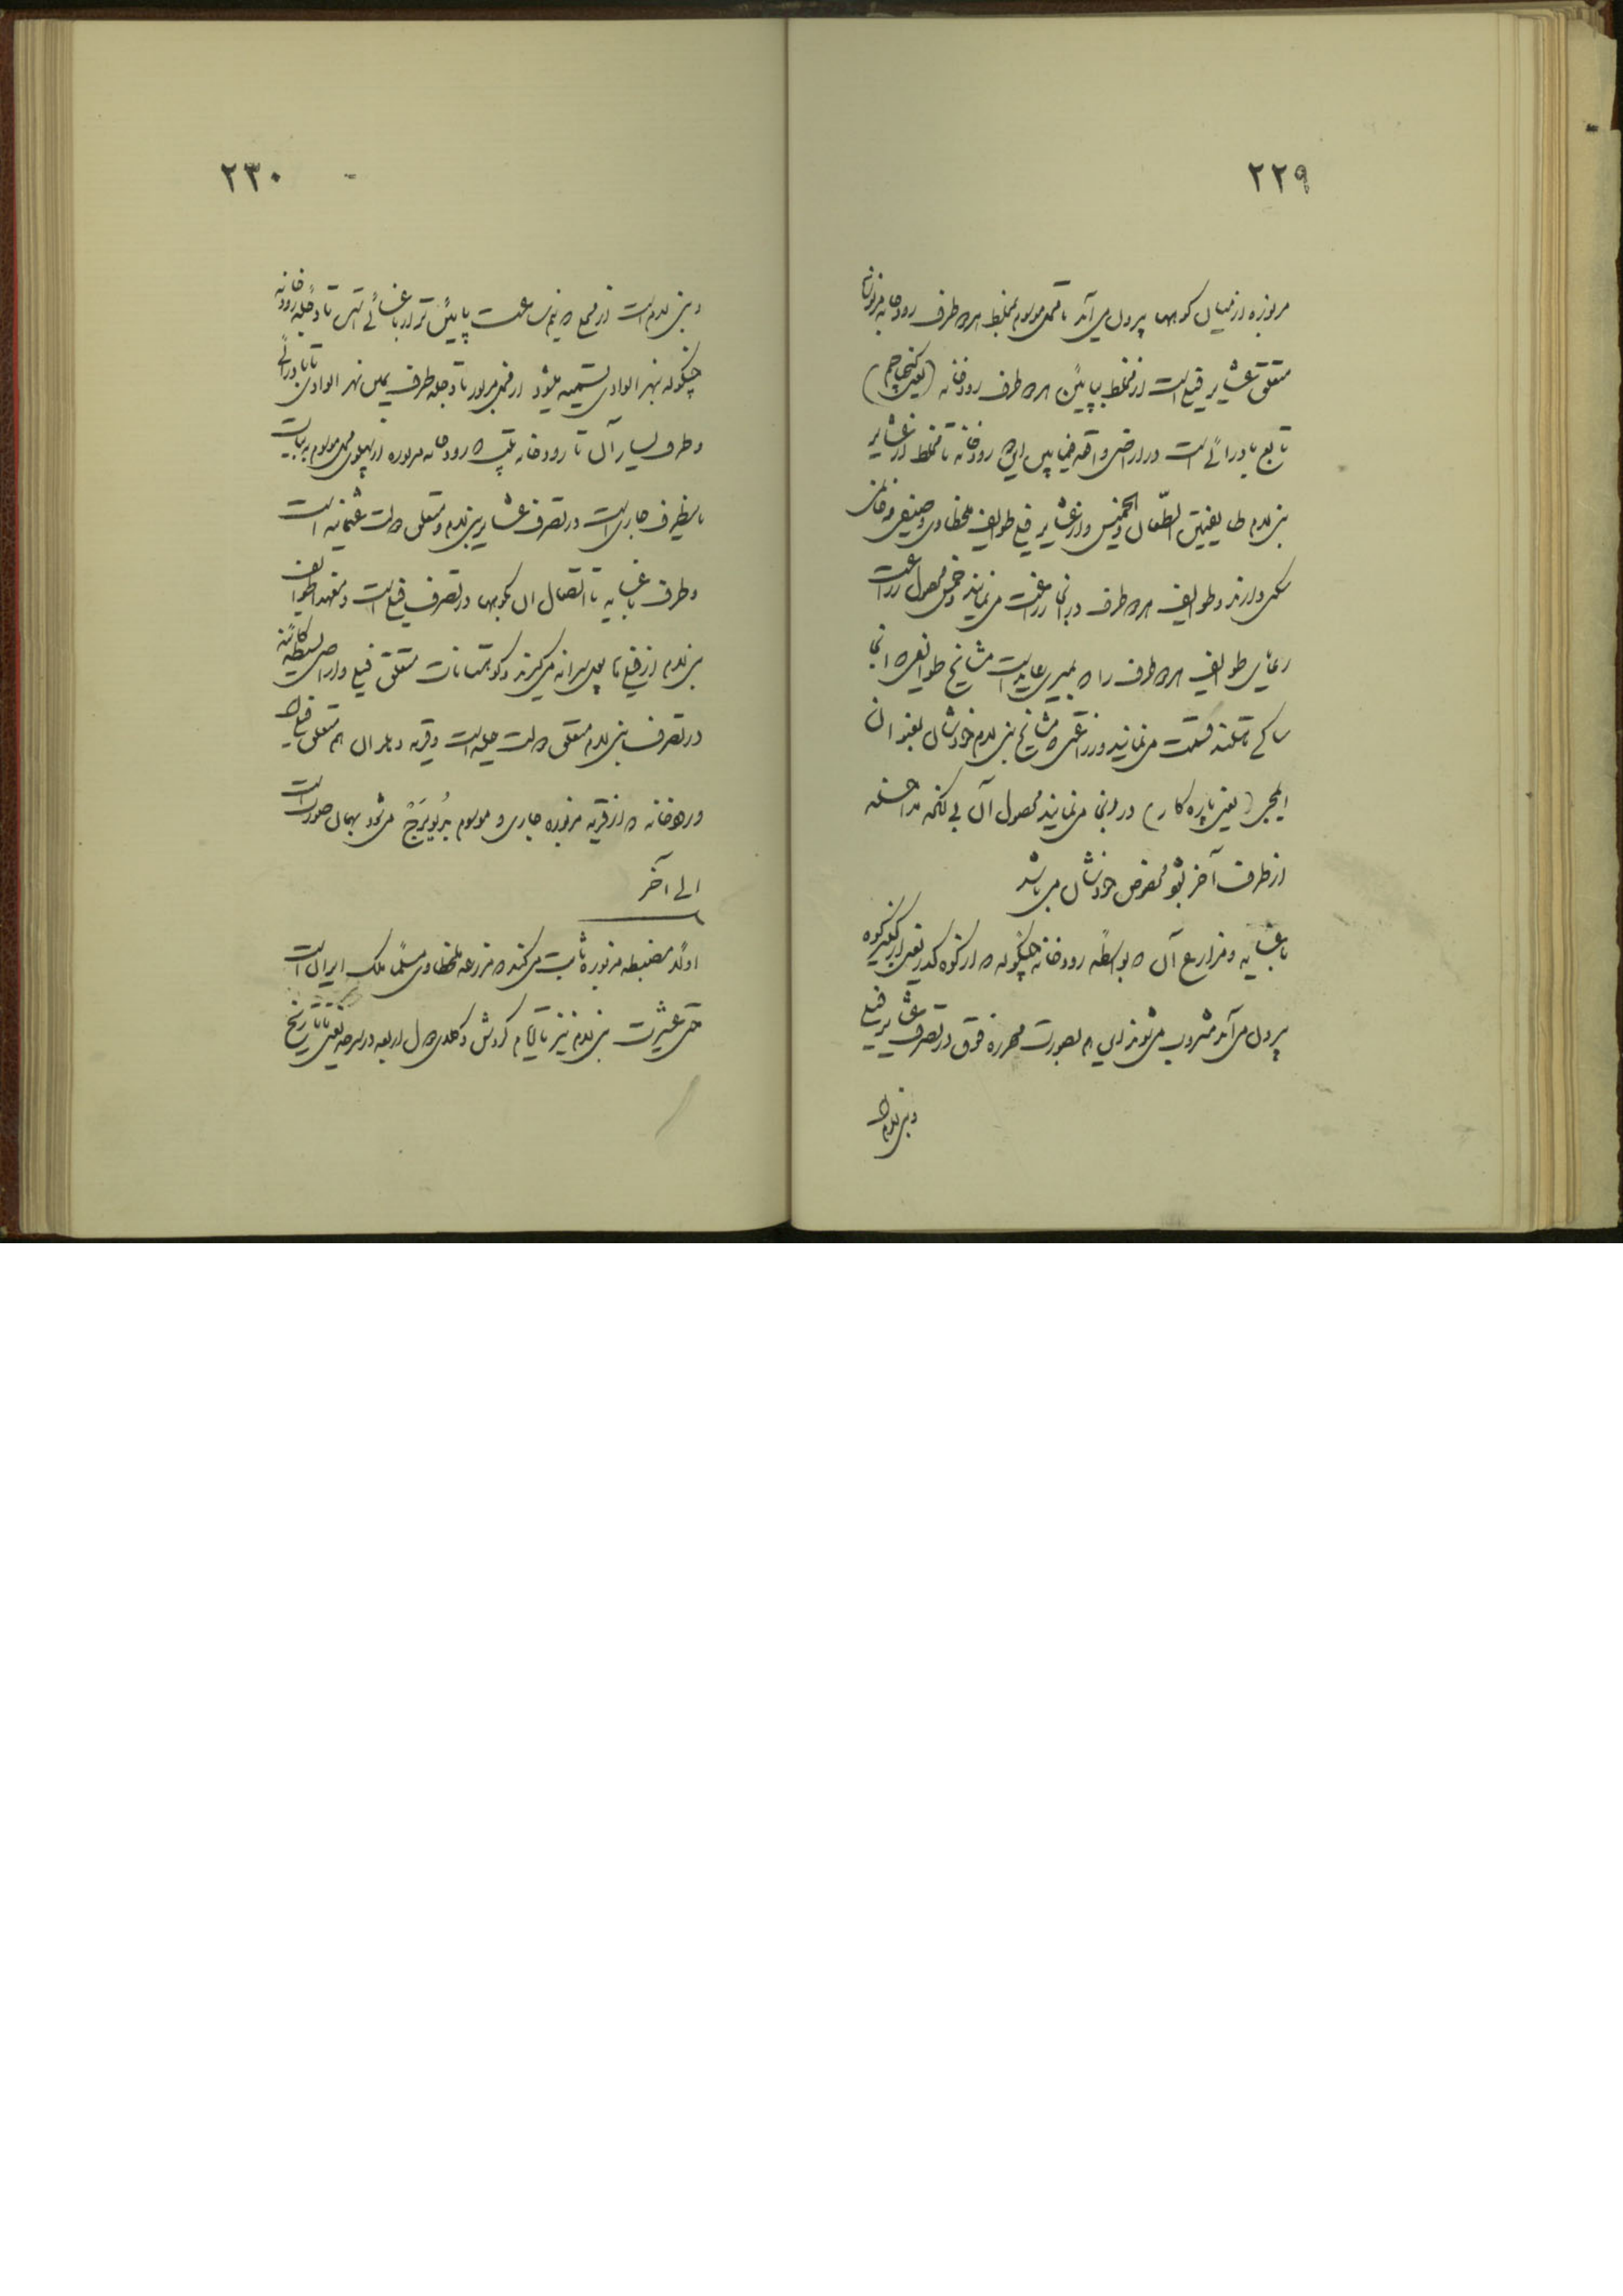 ۲۲۹
مزبوره از میان کوهها بیرون می‌آید تا محل موسوم بمخلط هر دو طرف رودخانه مزبوره
متعلق عشایر فیلی است از مخلط بپایین هر دو طرف رودخانه (یعنی کنجانچم)
تابع بادرائی است در اراضی واقعه فیمابین این رودخانه تا مخلط از عشایر
بنی لام طایفتین الطعان و الخمیس و از عشایر فیلی طوایف ملخطاوی و صیفی
سکنی دارند و طوایف هر دو طرف در آنجا زراعت می‌نمایند و خمس محصول زراعت
رعایای طوایف هر دو طرف را که بمیری عاید است مشایخ طوایفی که در آنجا
ساکن هستند قسمت می‌نمایند و زراعتی که مشایخ بنی لام خودشان بعنوان
(یعنی پاره کار) در آنجا می‌نمایند محصول آن بی آنکه مداخله
از طرف آخر بشود مخصوص خودشان می‌باشد
باغسایه و مزارع آن که بواسطه رودخانه چنگوله که از کوه کبیر کوه
بیرون می‌آید مشروب می‌شوند این هم بصورت محرره فوق در تصرف عشایر فیلی
و بنی لام
۲۳۰
و بنی لام است از محلی که نیم ساعت پایین‌تر از باغسائی است تا دجله رودخانه
چنگوله بنهر الوادی تسمیه میشود از محل مزبور تا دجله طرف یمین نهر الوادی تا بادرائی
و طرف یسار آن تا رودخانه طیب که رودخانه مزبوره از پهلوی محل موسوم به بیات
باینطرف جاری است در تصرف عشایر بنی لام و متعلق دولت عثمانیه است
و طرف باغسایه تا اتصال آن بکوهها در تصرف فیلی است و معهذا طوایف
بنی لام از فیلی‌ها پول سرانه می‌گیرند و کوهستانات متعلق فیلی و اراضی بسیطه کائنه
در تصرف بنی لام متعلق دولت علیه است و قریه دهلران هم متعلق فیلی
و رودخانه که از قریه مزبوره جاری و موسوم به دویرج می‌شود بهمان صورت است
الی آخر
اولاً مضبطه مزبوره ثابت می‌کند که مزرعه ملخطاوی مسلماً ملک ایران است
حتی عشیرت بنی لام نیز تا ایام گردش وکلای دول اربعه در سرحد یعنی تا تاریخ